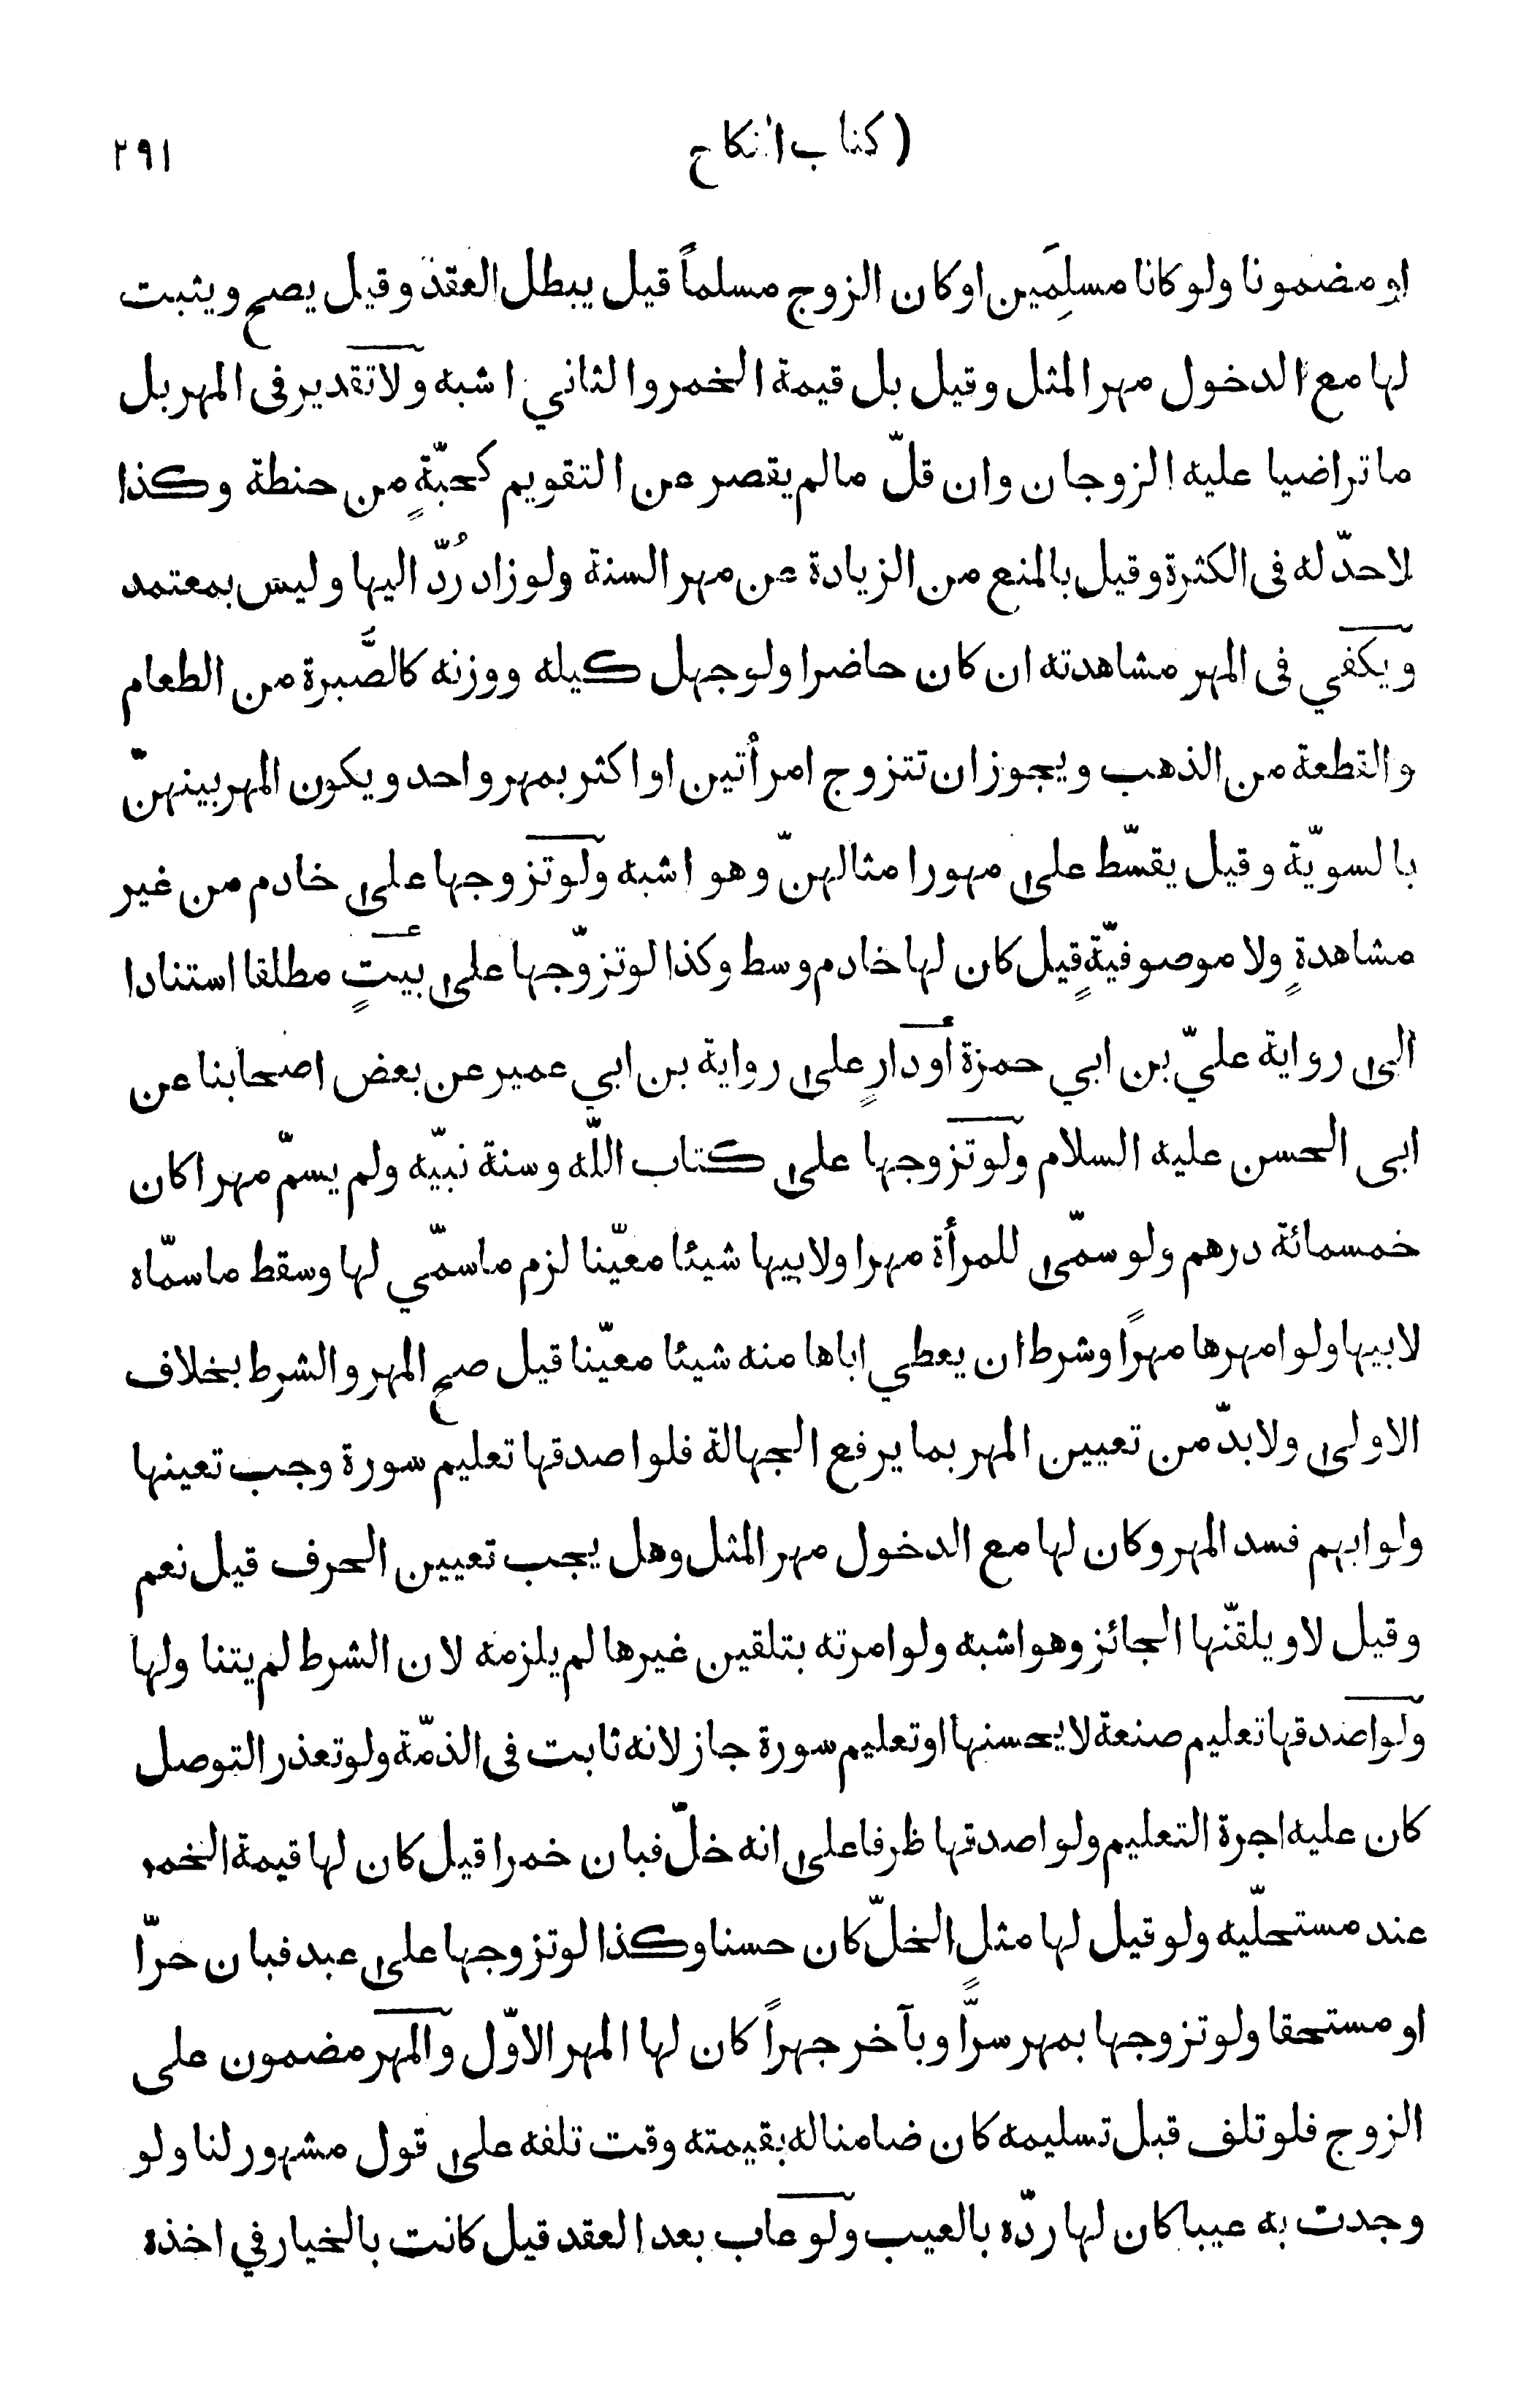 ( كتاب النكاح
٢٩١
او مضمونا ولو كانا مسلِمَين او كان الزوج مسلماً قيل يبطل العقد وقيل يصح ويثبت
لها مع الدخول مهر المثل وقيل بل قيمة الخمر والثاني اشبه ولا تقدير فى المهر بل
ما تراضيا عليه الزوجان وان قلّ ما لم يقصر عن التقويم كحبّةٍ من حنطة وكذا
لا حدّ له فى الكثرة وقيل بالمنع من الزيادة عن مهر السنة ولو زاد رُدّ اليها وليس بمعتمد
ويكفي فى المهر مشاهدته ان كان حاضرا ولو جهل كيله ووزنه كالصُّبرة من الطعام
والقطعة من الذهب ويجوز ان تتزوج امرأتين او اكثر بمهر واحد ويكون المهر بينهنّ
بالسويّة وقيل يقسّط على مهور امثالهنّ وهو اشبه ولو تزوجها على خادم من غير
مشاهدةٍ ولا موصوفيّةٍ قيل كان لها خادم وسط وكذا لو تزوّجها على بيتٍ مطلقا استنادا
الى رواية عليّ بن ابي حمزة أو دارٍ على رواية بن ابي عمير عن بعض اصحابنا عن
ابى الحسن عليه السلام ولو تزوجها على كتاب اللّه وسنة نبيّه ولم يسمّ مهرا كان
خمسمائة درهم ولو سمّى للمرأة مهرا ولابيها شيئا معيّنا لزم ما سمّي لها وسقط ما سمّاه
لابيها ولو امهرها مهرًا وشرط ان يعطي اباها منه شيئا معيّنا قيل صح المهر والشرط بخلاف
الاولى ولا بدّ من تعيين المهر بما يرفع الجهالة فلو اصدقها تعليم سورة وجب تعينها
ولو ابهم فسد المهر وكان لها مع الدخول مهر المثل وهل يجب تعيين الحرف قيل نعم
وقيل لا ويلقّنها الجائز وهو اشبه ولو امرته بتلقين غيرها لم يلزمه لان الشرط لم يتنا ولها
ولو اصدقها تعليم صنعة لا يحسنها او تعليم سورة جاز لانه ثابت فى الذمّة ولو تعذر التوصل
كان عليه اجرة التعليم ولو اصدقها ظرفا على انه خلّ فبان خمرا قيل كان لها قيمة الخمر
عند مستحلّيه ولو قيل لها مثل الخلّ كان حسنا وكذا لو تزوجها على عبد فبان حرّا
او مستحقا ولو تزوجها بمهر سرًّا وبآخر جهراً كان لها المهر الاوّل والمهر مضمون على
الزوج فلو تلف قبل تسليمه كان ضامنا له بقيمته وقت تلفه على قول مشهور لنا ولو
وجدت به عيبا كان لها ردّه بالعيب ولو عاب بعد العقد قيل كانت بالخيار في اخذه